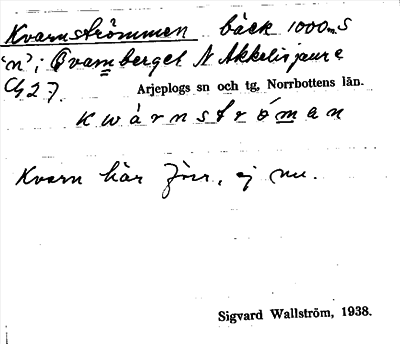 Kvarnströmmen bäck 1000m S
'n'; Kvarnberget N Akkelisjaure
G27.
Arjeplogs sn och tg, Norrbottens län.
kwa̍rnstrómən
Kvarn här förr, ej nu.
Sigvard Wallström, 1938.